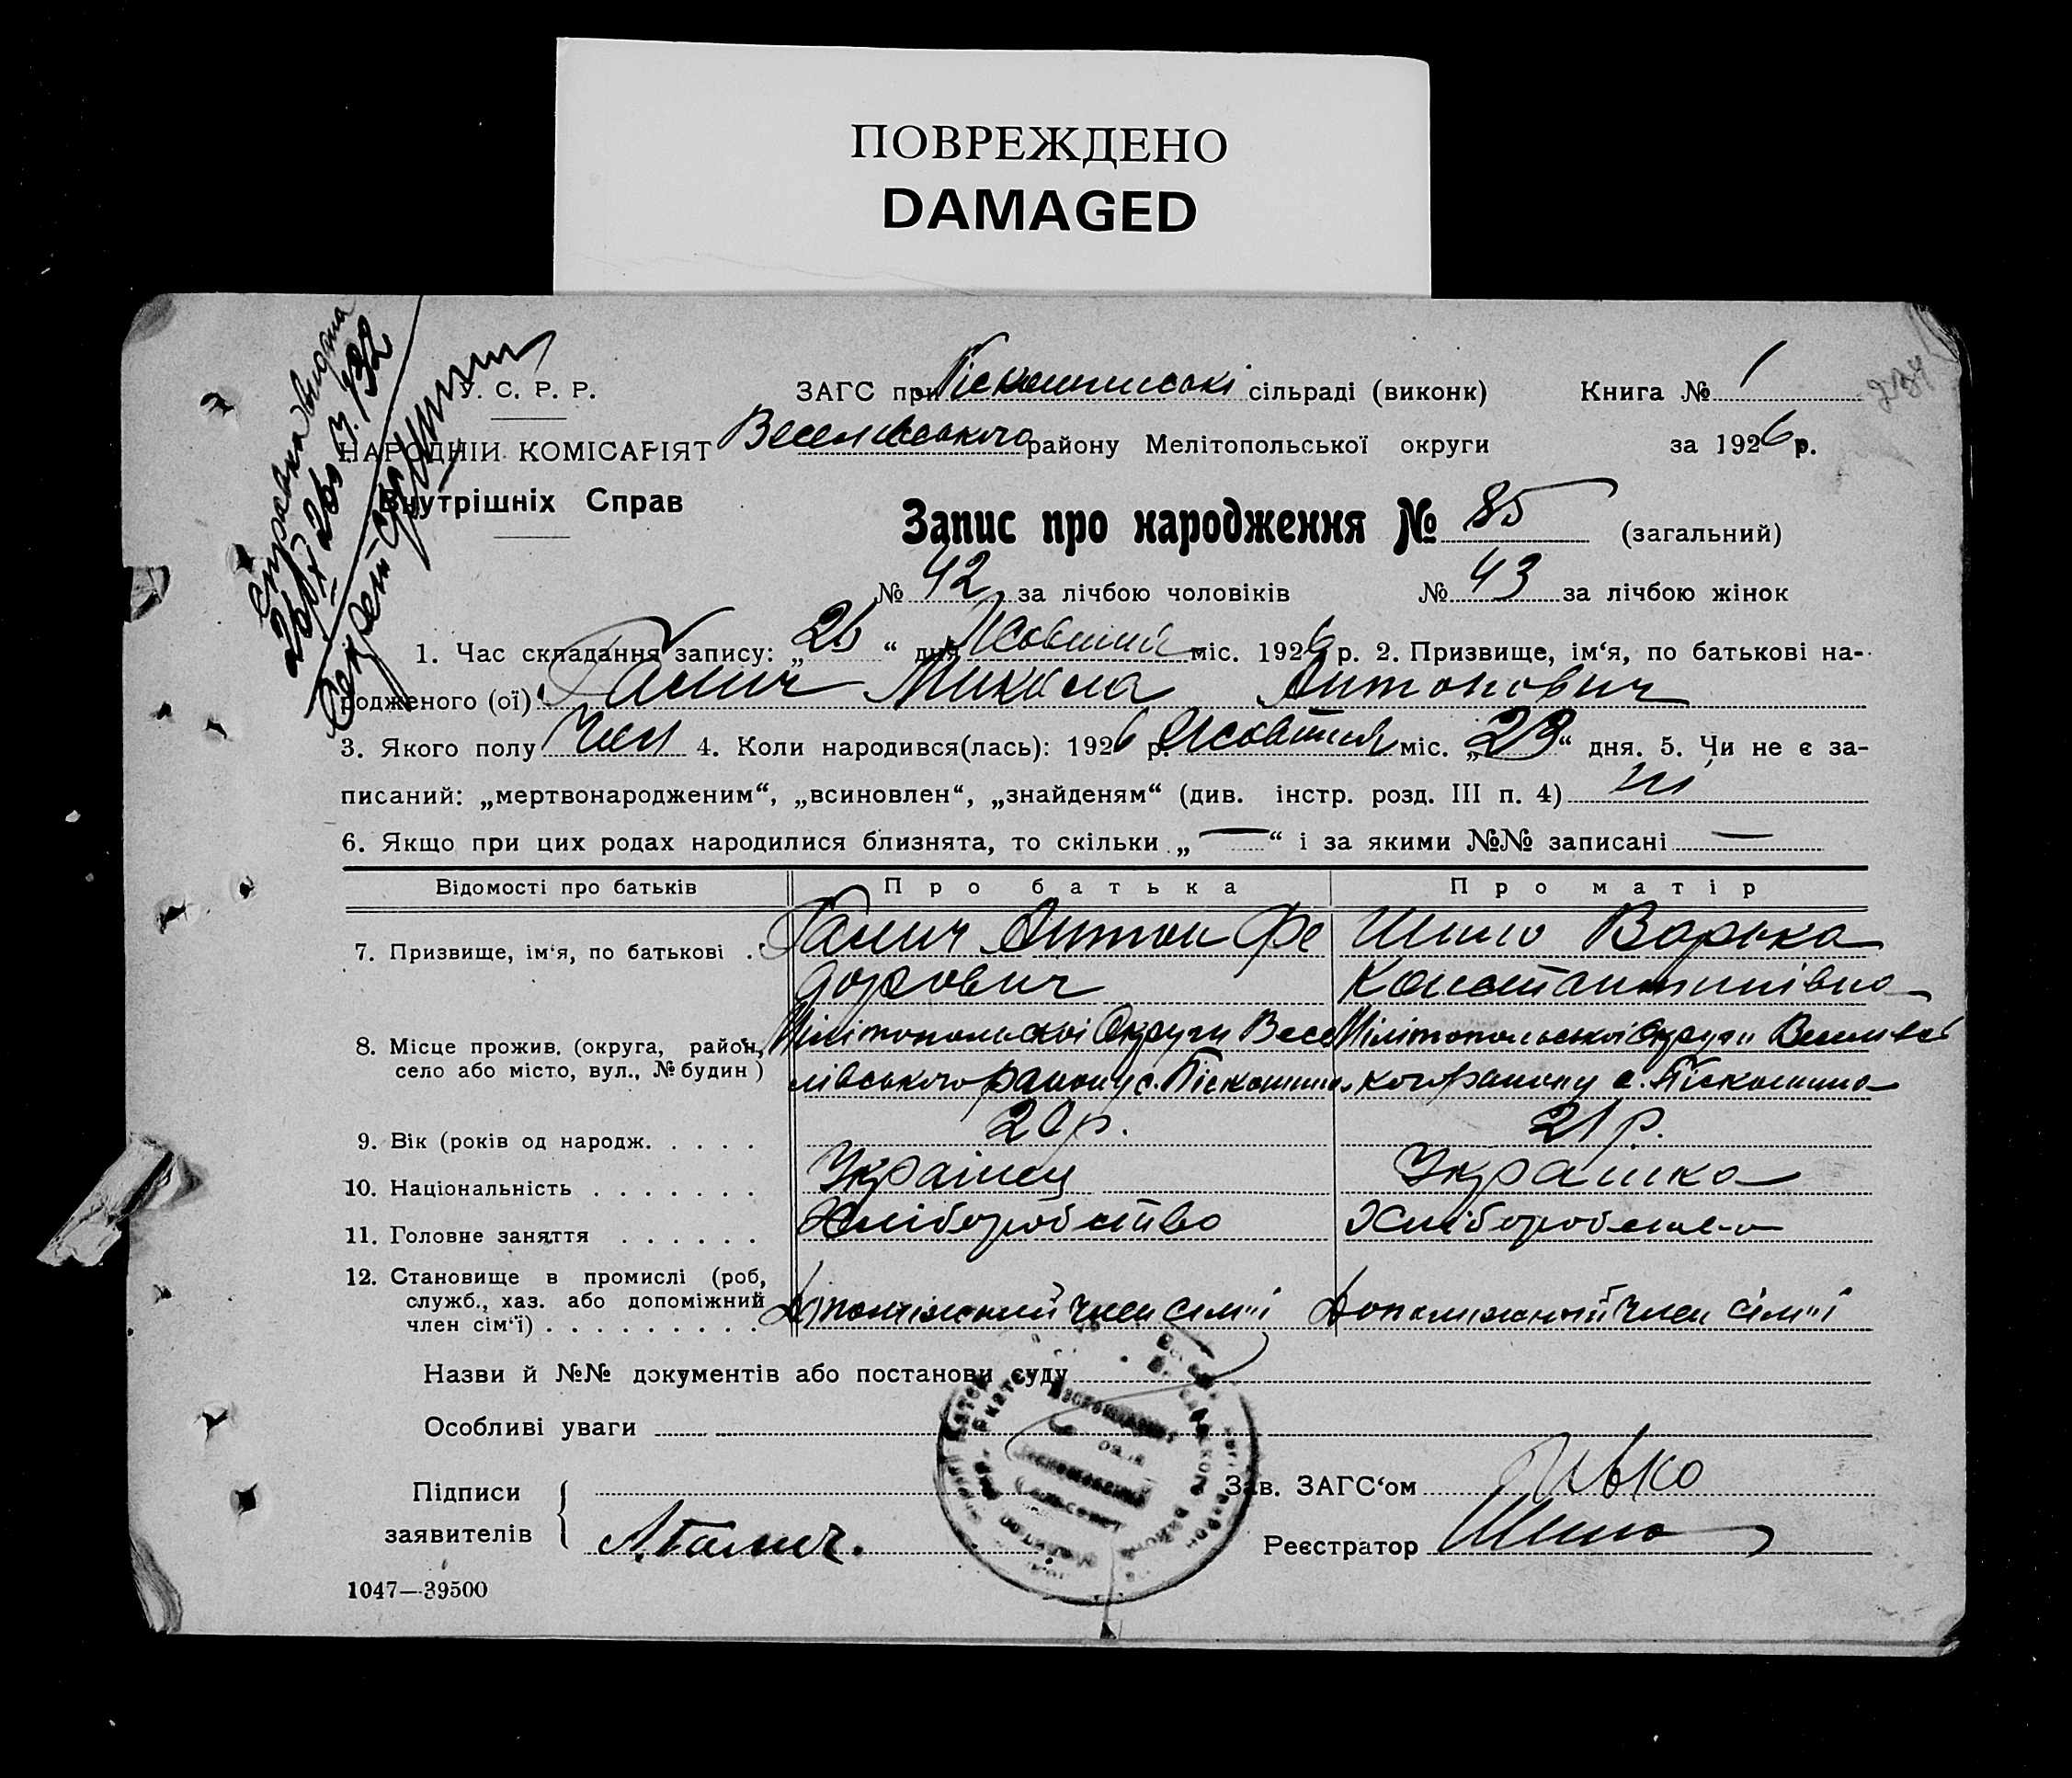 ПОВРЕЖДЕНО
DAMAGED
Справка видана
26/X 26 г. № 132
У. С. Р. Р.
ЗАГС при Піскошинські сільраді (виконк)
Книга № 1
234
НАРОДНІЙ КОМІСАРІЯТ
Веселівського району Мелітопольської округи
за 1926 р.
Внутрішніх Справ
Запис про народження № 85 (загальний)
№ 42 за лічбою чоловіків № 43 за лічбою жінок
1. Час складання запису: „26“ дня Жовтня міс. 1926 р. 2. Призвище, ім‘я, по батькові на-
родженого (ої) Галич Микола Антонович
3. Якого полу Чол 4. Коли народився(лась): 1926 р. Жовтня міс. „23“ дня. 5. Чи не є за-
писаний: „мертвонародженим“, „всиновлен“, „знайденям“ (див. інстр. розд. III п. 4) ні
6. Якщо при цих родах народилися близнята, то скільки „—“ і за якими №№ записані —
Відомості про батьків Про батька Про матір
7. Призвище, ім‘я, по батькові . Галич Антон Фе Шило Варька
дорович Константинівна
8. Місце прожив. (округа, район, Мілітопольскоі Округи Весе Мілітопольськоі Округи Веселівс
село або місто, вул., № будин) лівського району с. Піскошино кого району с. Піскошино
9. Вік (років од народж. . . . . 20 р. 21 р.
10. Національність . . . . . . . Украінец Украінка
11. Головне заняття . . . . . . Хліборобство Хліборобство
12. Становище в промислі (роб,
служб., хаз. або допоміжний
член сім‘ї) . . . . . . . . . Допоміжний член сім"і Допоміжний член сім"і
Назви й №№ документів або постанови суду
Особливі уваги
Підписи
заявителів
А. Галич.
Зав. ЗАГС‘ом
Реєстратор Шило
1047—39500